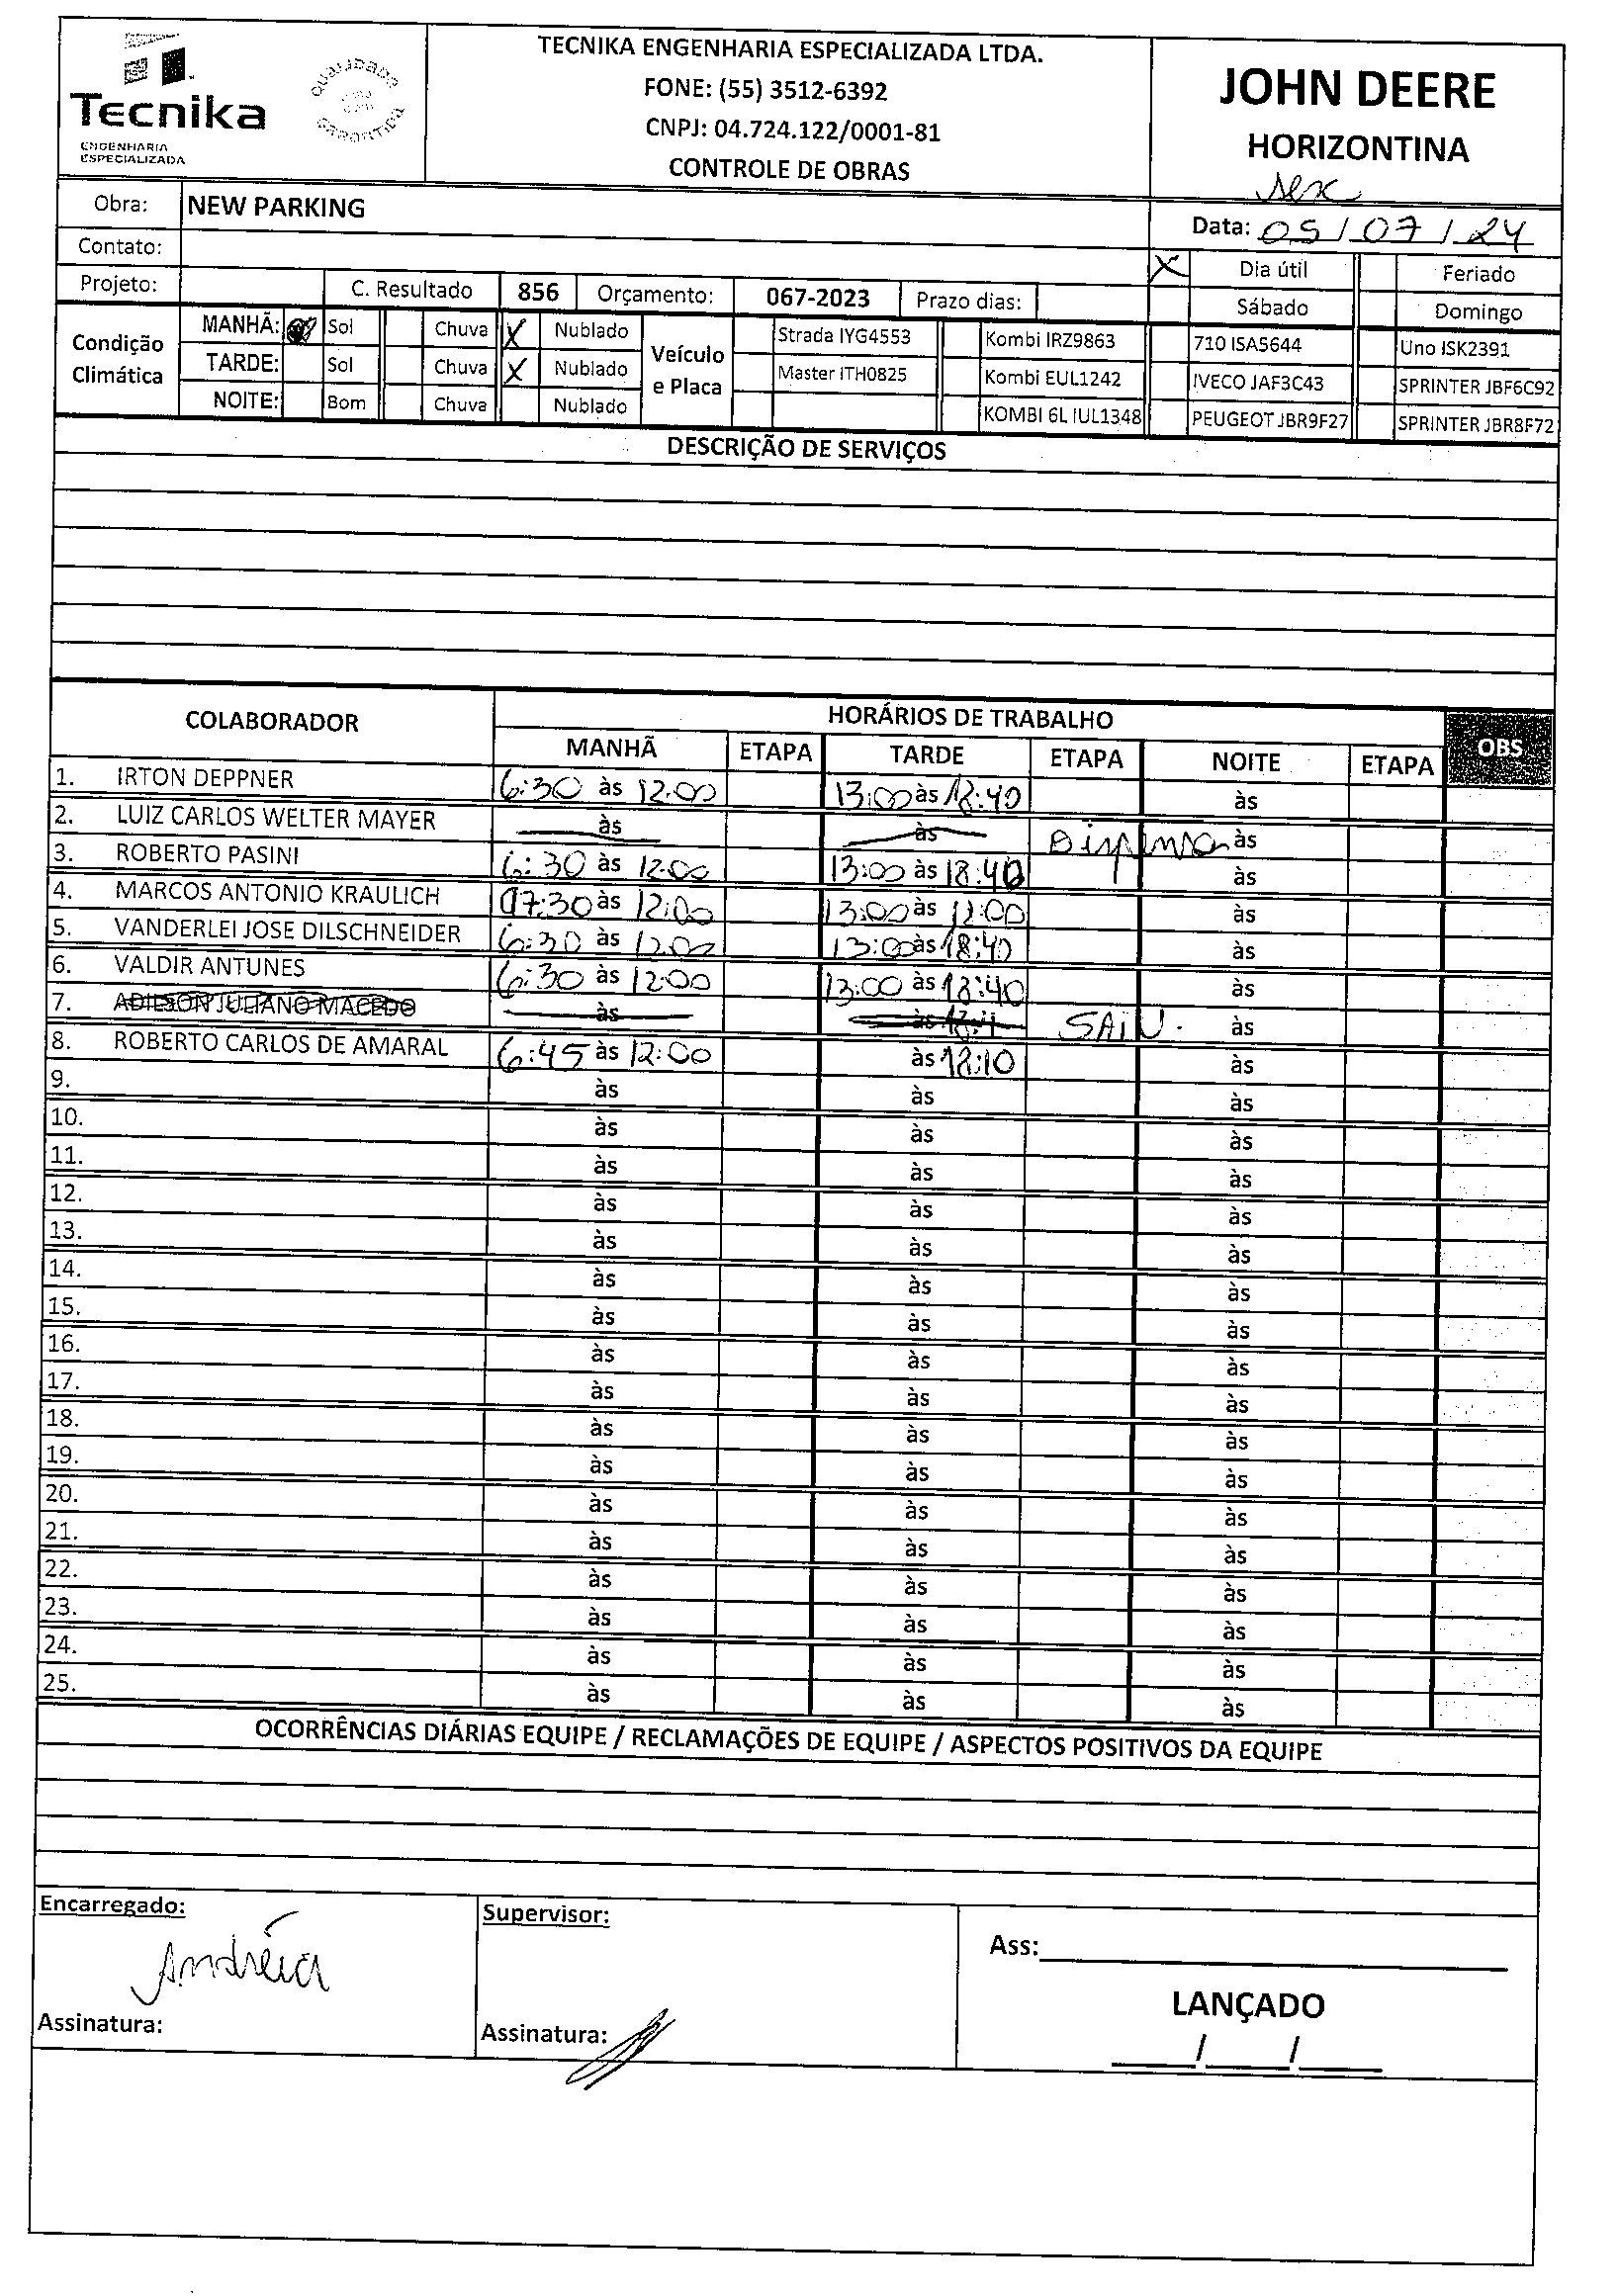 Tecnika
ENGENHARIA
ESPECIALIZADA
QUALIDADE
GARANTIDA
TECNIKA ENGENHARIA ESPECIALIZADA LTDA.
FONE: (55) 3512-6392
CNPJ: 04.724.122/0001-81
CONTROLE DE OBRAS
JOHN DEERE
HORIZONTINA
sex
Obra: NEW PARKING
Data: 05/07/24
Contato:
X Dia útil Feriado
Projeto: C. Resultado 856 Orçamento: 067-2023 Prazo dias: Sábado Domingo
Condição Climática
MANHÃ: Sol Chuva X Nublado
TARDE: Sol Chuva X Nublado
NOITE: Bom Chuva Nublado
Veículo e Placa
Strada IYG4553 Kombi IRZ9863 710 ISA5644 Uno ISK2391
Master ITH0825 Kombi EUL1242 IVECO JAF3C43 SPRINTER JBF6C92
KOMBI 6L IUL1348 PEUGEOT JBR9F27 SPRINTER JBR8F72
DESCRIÇÃO DE SERVIÇOS
COLABORADOR HORÁRIOS DE TRABALHO OBS
MANHÃ ETAPA TARDE ETAPA NOITE ETAPA
1. IRTON DEPPNER 6:30 às 12:00 13:00 às 18:40 às
2. LUIZ CARLOS WELTER MAYER às às Dispensa às
3. ROBERTO PASINI 6:30 às 12:00 13:00 às 18:40 às
4. MARCOS ANTONIO KRAULICH 07:30 às 12:00 13:00 às às
5. VANDERLEI JOSE DILSCHNEIDER 6:30 às 12:00 13:00 às 18:40 às
6. VALDIR ANTUNES 6:30 às 12:00 13:00 às 18:40 às
7. ADILSON JULIANO MACEDO às às SAIU. às
8. ROBERTO CARLOS DE AMARAL 6:45 às 12:00 às 18:10 às
9. às às às
10. às às às
11. às às às
12. às às às
13. às às às
14. às às às
15. às às às
16. às às às
17. às às às
18. às às às
19. às às às
20. às às às
21. às às às
22. às às às
23. às às às
24. às às às
25. às às às
OCORRÊNCIAS DIÁRIAS EQUIPE / RECLAMAÇÕES DE EQUIPE / ASPECTOS POSITIVOS DA EQUIPE
Encarregado:
Andréia
Assinatura:
Supervisor:
Assinatura:
Ass:
LANÇADO
___/___/___